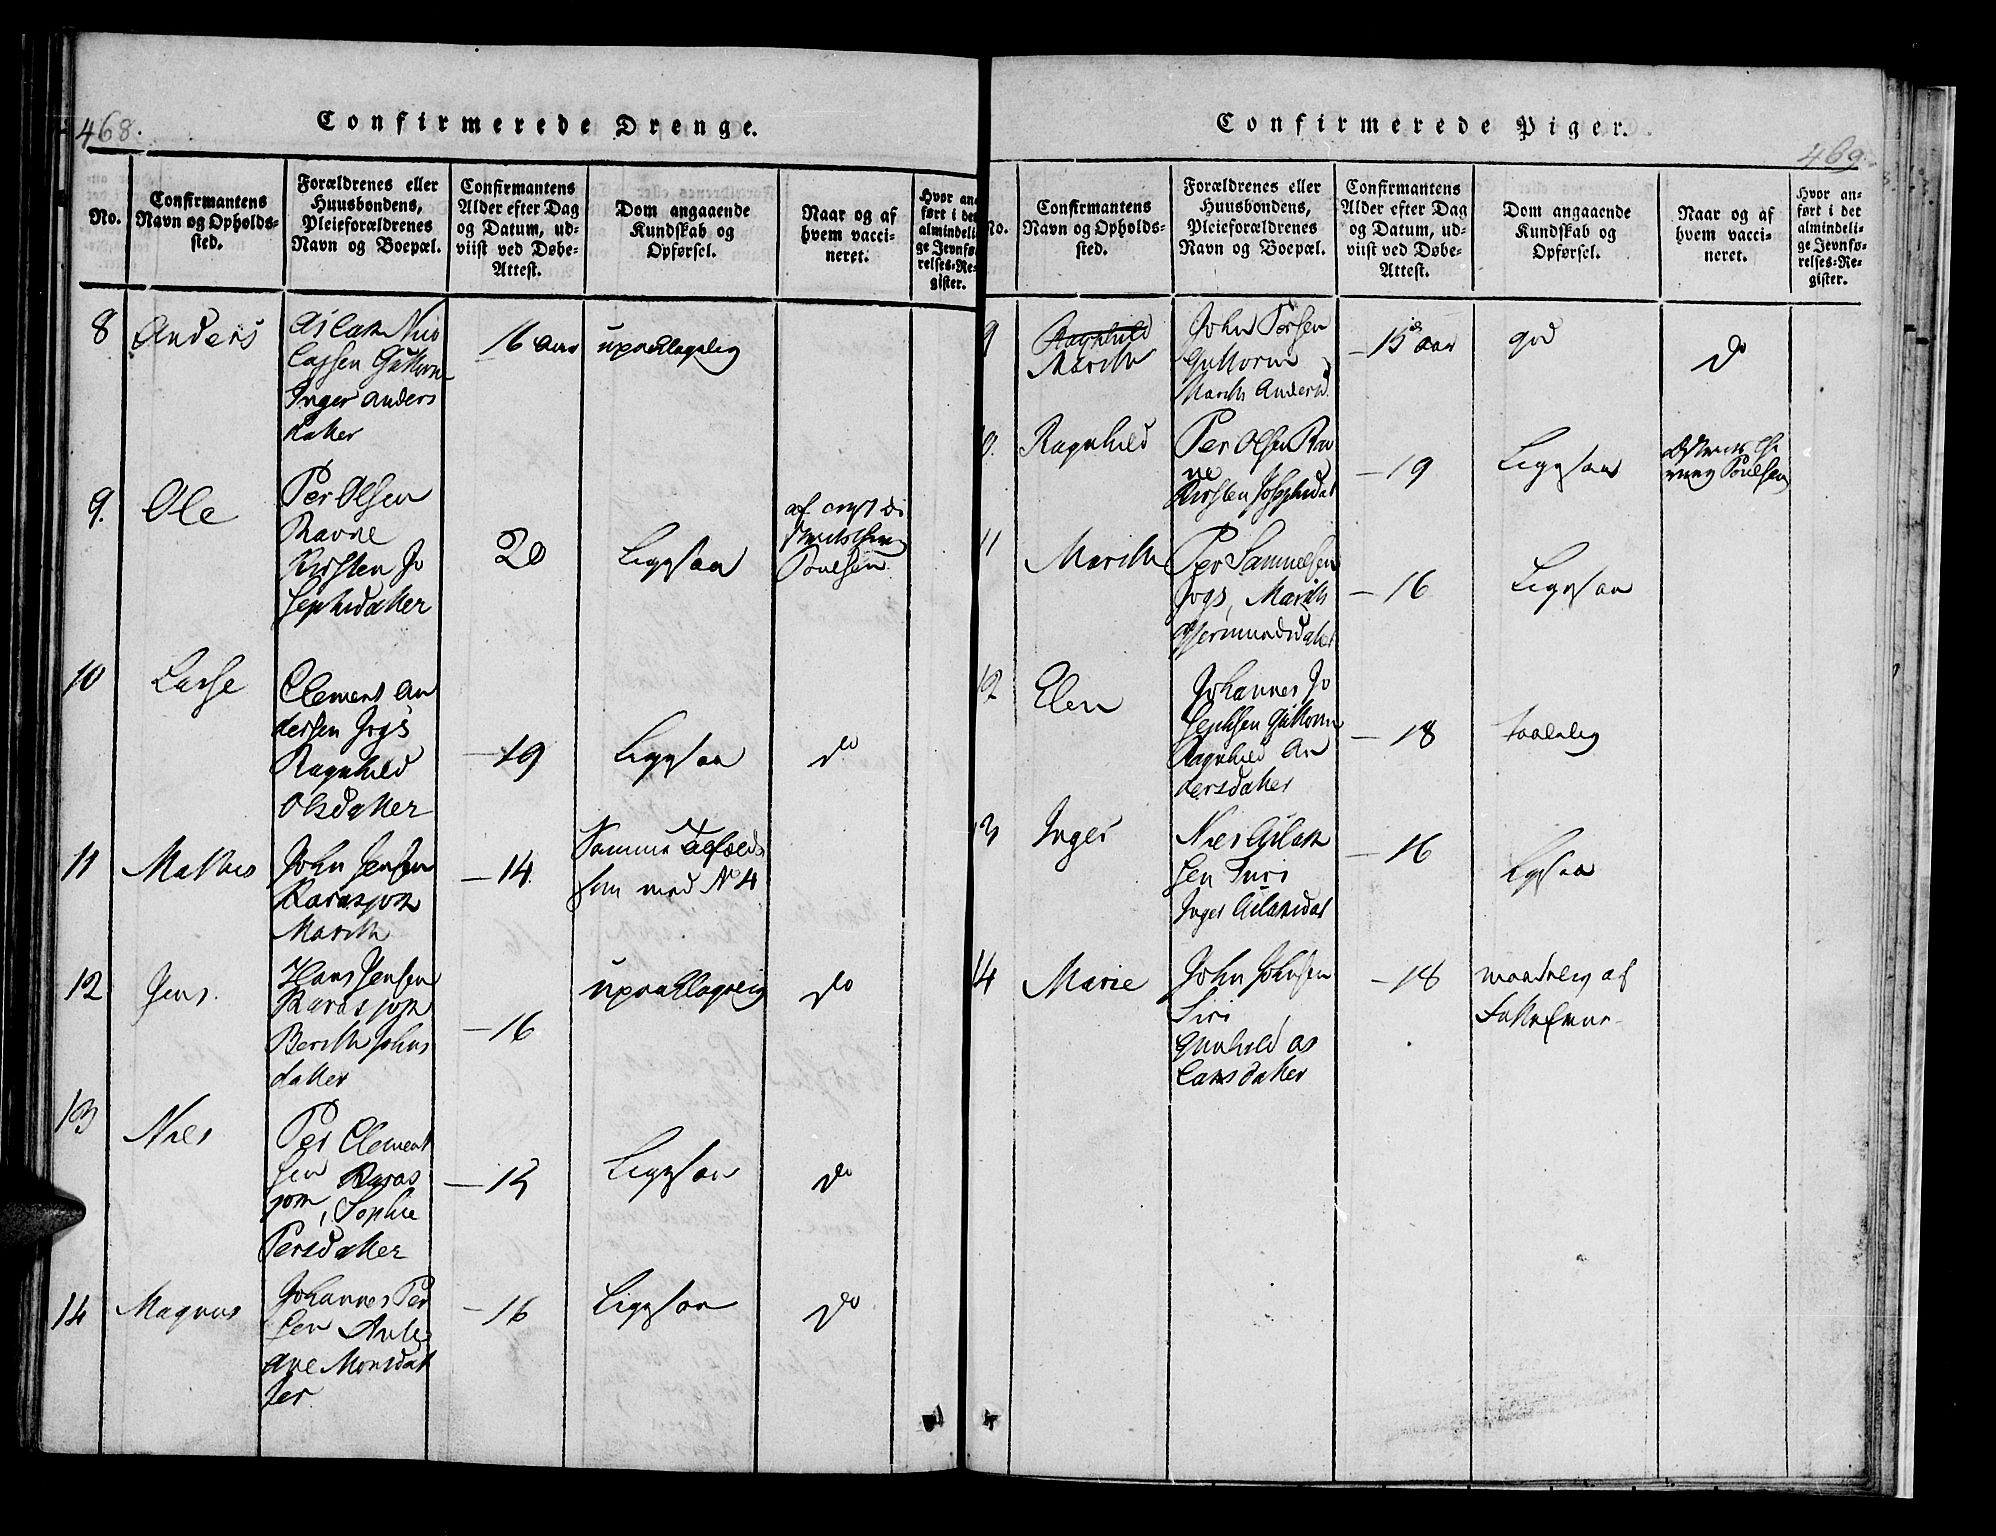 468.
Confirmerede Drenge.
No.
Confirmantens
Navn og Opholds-
sted.
Forældrenes eller
Huusbondens,
Pleieforældrenes
Navn og Boepæl.
Confirmantens
Alder efter Dag
og Datum, ud-
viist ved Døbe-
Attest.
Dom angaaende
Kundskab og
Opførsel.
Naar og af
hvem vacci-
neret.
Hvor an-
ført i det
almindeli-
ge Jevnfø-
relses-Re-
gister.
8
Anders
Aslak Nico
lassen Guttorm
Inger Anders
datter
16 Aar
upaaklagelig
9.
Ole
Per Olsen
Ravne
Kirsten Jo
sephsdatter
20
Ligesaa
af
Poulsen
10
Lasse
Clement An
dersen Jogs
Ragnhild
Olsdatter
19
Ligesaa
do
11
Mathis
John Jensen
Karasjok
Marith
14
Samme
som med No 4
12
Jens
Hans Jensen
Karasjok
Berith Johns
datter
16
upaaklagelig
do
13
Niels
Per Clement
sen Karas
jok, Sophie
Persdatter
15
Ligesaa
do
14
Magnus
Johannes Per
sen
Ane Monsdat
ter
16
Ligesaa
do
Confirmerede Piger.
469.
No.
Confirmantens
Navn og Opholds-
sted.
Forældrenes eller
Huusbondens,
Pleieforældrenes
Navn og Boepæl.
Confirmantens
Alder efter Dag
og Datum, ud-
viist ved Døbe-
Attest.
Dom angaaende
Kundskab og
Opførsel.
Naar og af
hvem vacci-
neret.
Hvor an-
ført i det
almindeli-
ge Jevnfø-
relses-Re-
gister.
9
Ragnhild
Marith
John Persen
Guttorm
Marith Andersd
15 Aar
god
do
0.
Ragnhild
Per Olsen Rav
ne
Kirsten Josephsdat
19
Ligesaa
Poulsen
11
Marith
Per Samuelsen
Jogs, Marith
Gjermundsdatter
16
Ligesaa
12
Elen
Johannes Jo
sephsen Guttorm
Ragnhild An
dersdatter
18
taalelig
3
Inger
Niels Aslak
sen Siri
Inger Aslaksdat
16
Ligesaa
14
Marie
John Johnsen
Siri
Gunhild As
laksdatter
18
maadelig af